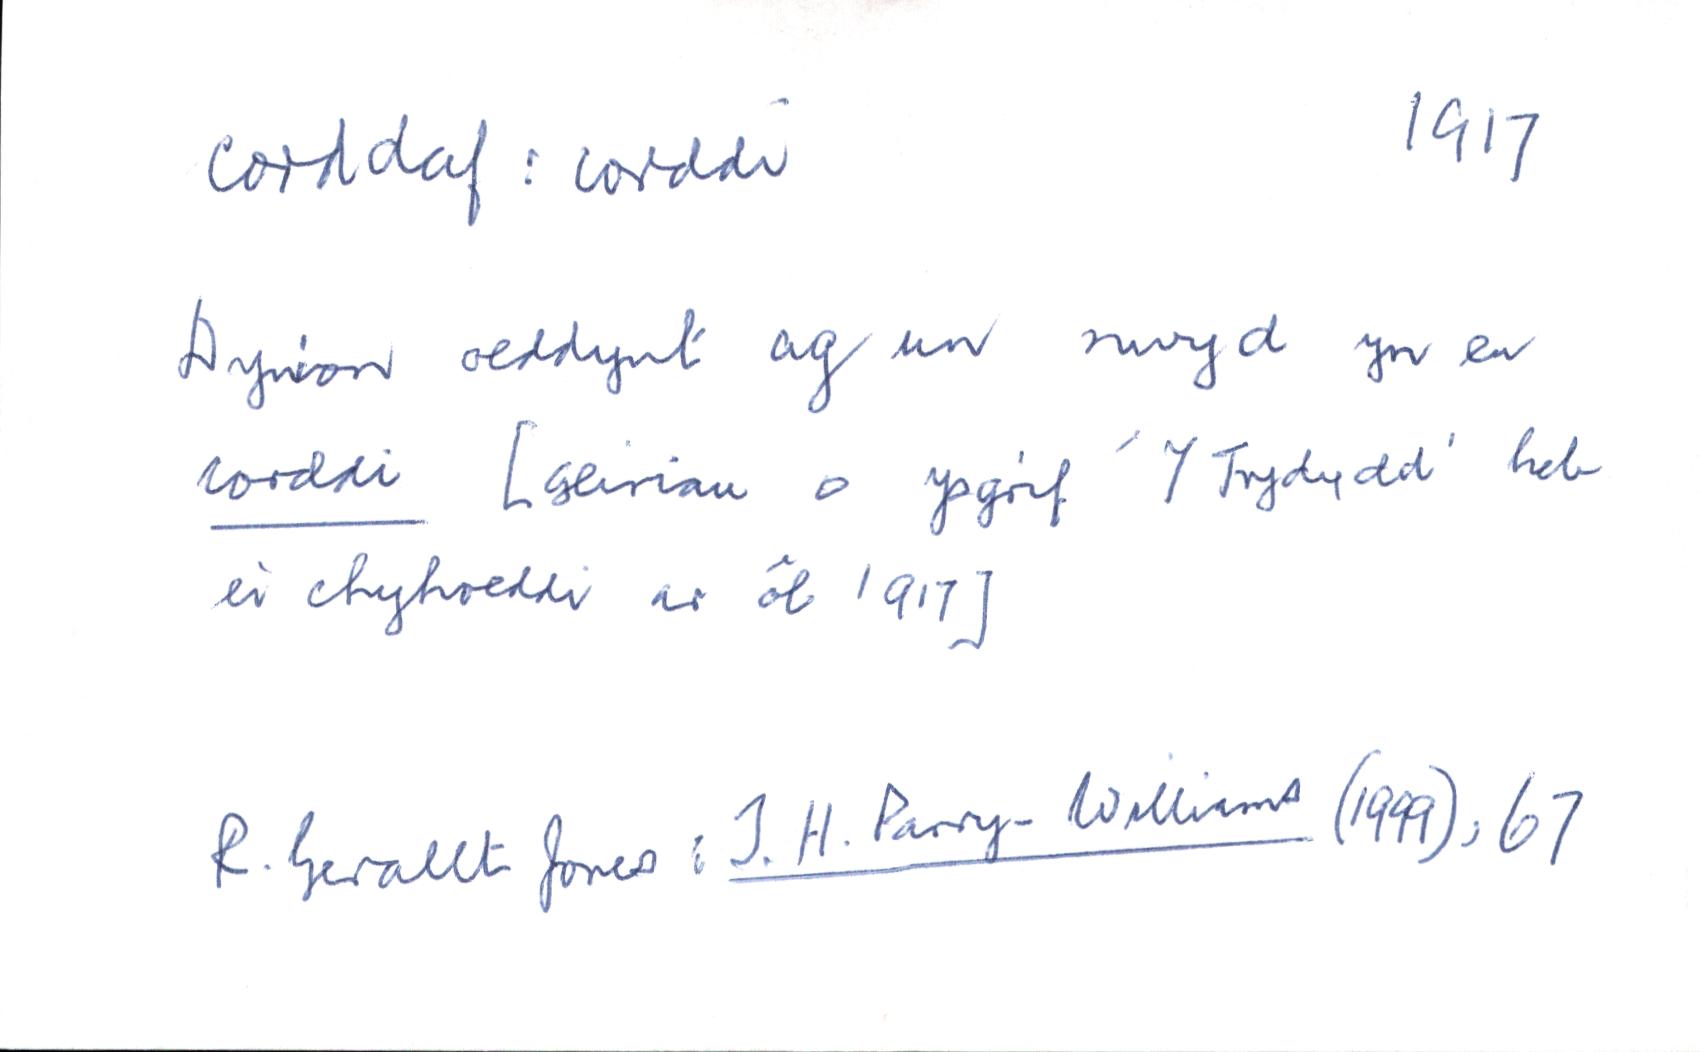 corddaf : corddi 1917
Dynion oeddynt ag un nwyd yn eu
corddi [geiriau o ysgrif 'Y Trydydd' heb
ei chyhoeddi ar ôl 1917]
R. Gerallt Jones : T. H. Parry-Williams (1999), 67